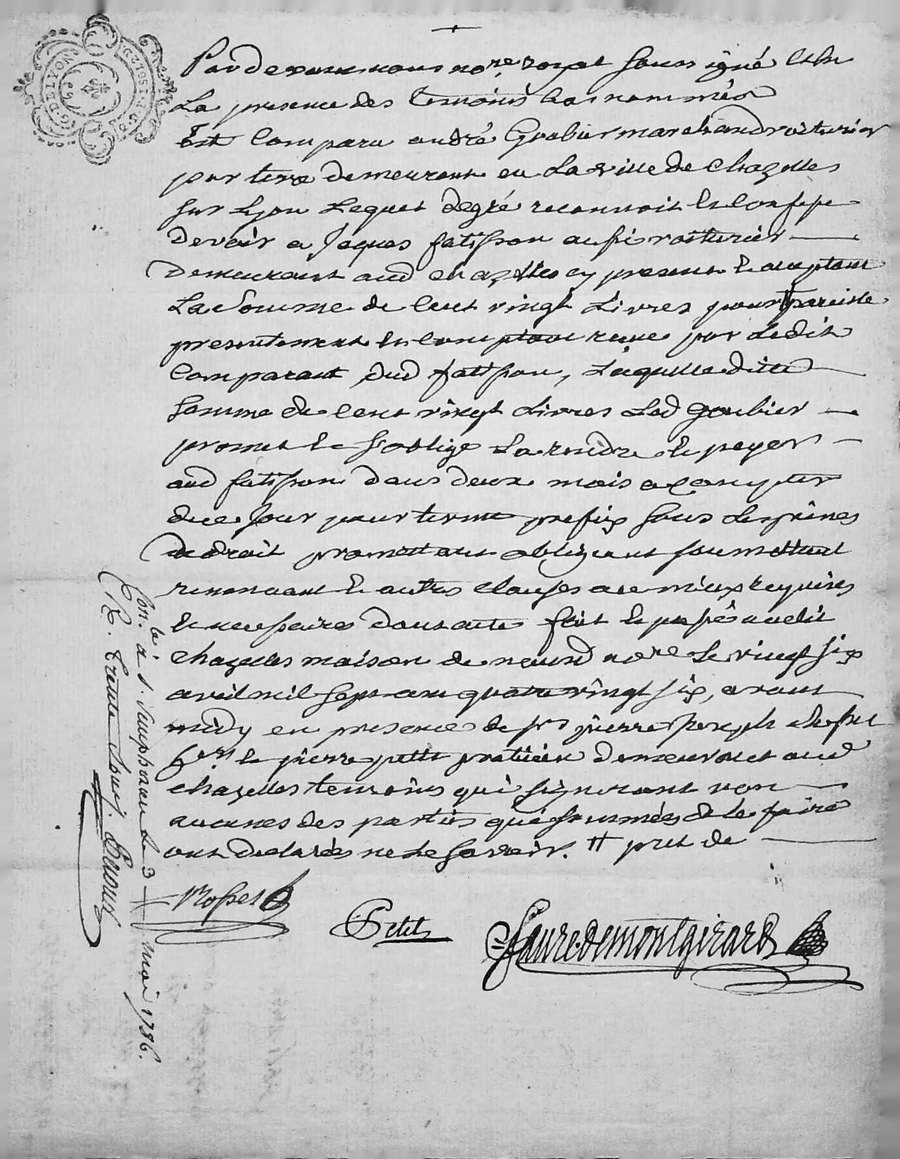 Pardevant nous nore royal soussigné et en
La presence des temoins bas nommés
Est Comparu andré Goubier marchand voiturier
par terre demeurant en La ville de Chazelles
sur Lyon Lequel de gré reconnoit et Confesse
devoir a Jaques fatisson aussi voiturier
demeurant aud Chazelles cy present et acceptant
La Somme de Cent vingt Livres pour
presentement et Comptant reçue par Ledit
Comparant dud fatisson, Laquelle ditte
somme de Cent vingt Livres Led Goubier
promet et s'oblige La rendre et payer
aud fatisson dans deux mois a Compter
de ce Jour pour terme prefix sous Les peines
de droit promettant obligeant soumettant
renonçant et autres clauses au mieux requises
et necessaires dont acte fait et passé audit
chazelles maison de nous d nore Le vingt six
avril mil sept cent quatre vingt six, avant
midy en presence de sr pierre Joseph
et pierre petit praticien demeurant aud
chazelles temoins qui signeront non
aucunes des parties qui sommées de le faire
ont declarés ne le savoir. pret de
Rosset
Petit
Faure de montgirard
Con.lé à S. Simphorien Le 3 mai 1786.
R. Trente Sous.
G. DE LYON